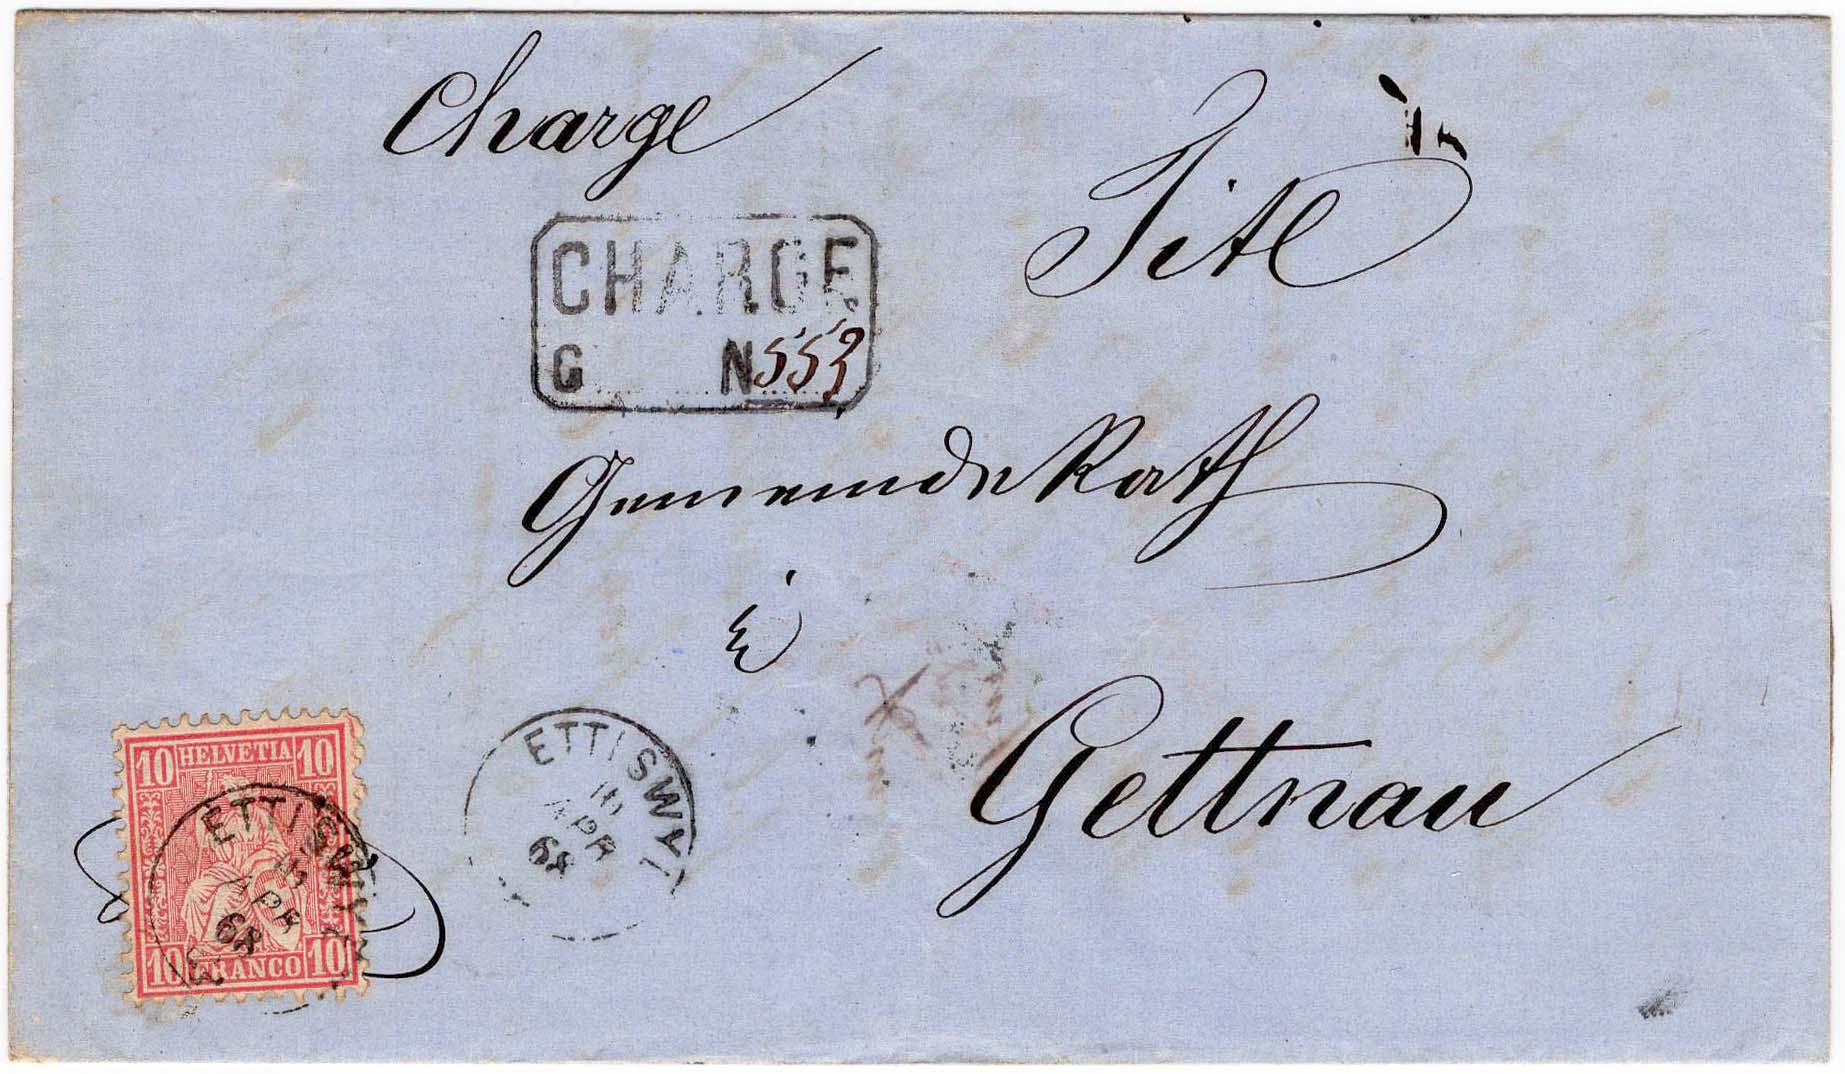 Charge
Titl
CHARGE
G N 553
GemeindeRath
in
Gettnau
10 HELVETIA 10
ETTISWYL
APR
68
10 FRANCO 10
ETTISWYL
APR
68